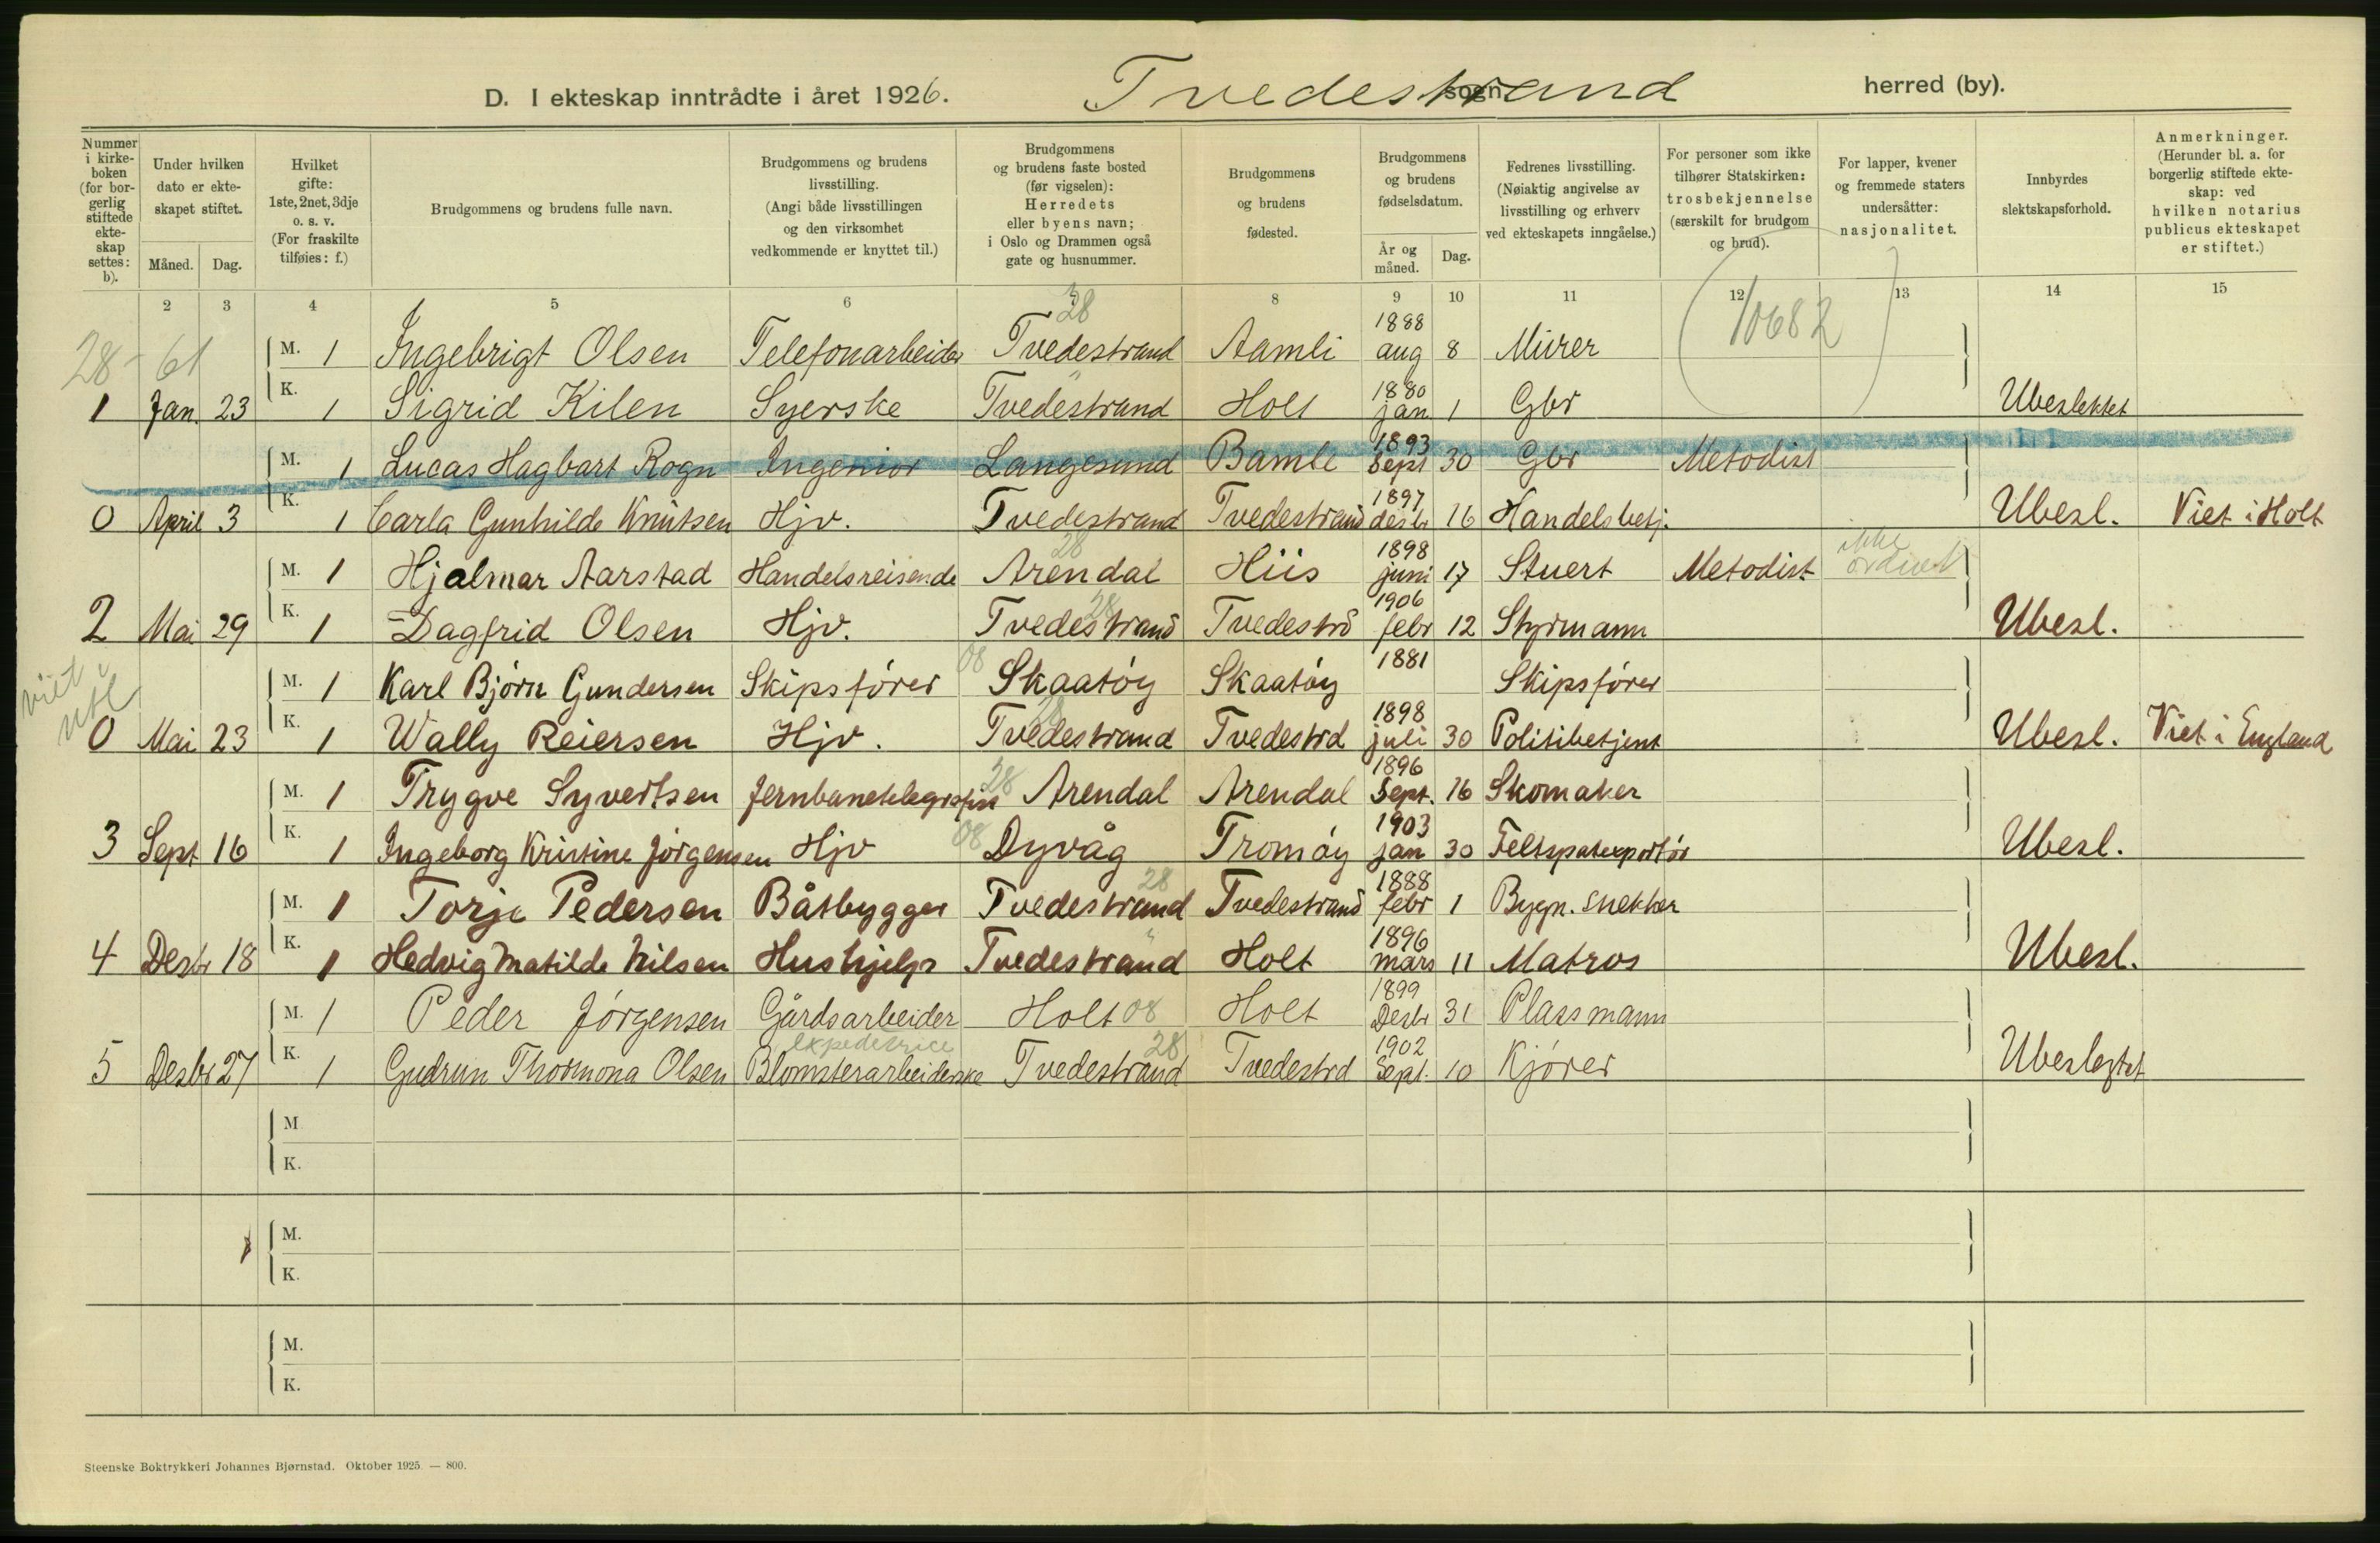 D. I ekteskap inntrådte i året 1926. Tvedestrand sogn herred (by).
Nummer i kirkeboken (for borgerlig stiftede ekteskap settes: b).
Under hvilken dato er ekteskapet stiftet.
Måned. Dag.
Hvilket gifte: 1ste, 2net, 3dje o. s. v. (For fraskilte tilføies: f.)
Brudgommens og brudens fulle navn.
Brudgommens og brudens livsstilling. (Angi både livsstillingen og den virksomhet vedkommende er knyttet til.)
Brudgommens og brudens faste bosted (før vigselen): Herredets eller byens navn; i Oslo og Drammen også gate og husnummer.
Brudgommens og brudens fødested.
Brudgommens og brudens fødselsdatum.
År og måned. Dag.
Fedrenes livsstilling. (Nøiaktig angivelse av livsstilling og erhverv ved ekteskapets inngåelse.)
For personer som ikke tilhører Statskirken: trosbekjennelse (særskilt for brudgom og brud).
For lapper, kvener og fremmede staters undersåtter: nasjonalitet.
Innbyrdes slektskapsforhold.
Anmerkninger. (Herunder bl. a. for borgerlig stiftede ekteskap: ved hvilken notarius publicus ekteskapet er stiftet.)
2 3 4 5 6 8 9 10 11 12 13 14 15
28 - 61 M. 1 Ingebrigt Olsen Telefonarbeider 28 Tvedestrand Aamli 1888 aug 8 Murer (10682)
1 Jan. 23 K. 1 Sigrid Kilen Syerske Tvedestrand Holt 1880 jan 1 Gbr Ubeslektet
M. 1 Lucas Hagbart Rogn Ingeniør Langesund Bamle 1893 Sept 30 Gbr Metodist
0 April 3 K. 1 Carla Gunhilde Knutsen Hjv. Tvedestrand Tvedestrand 1897 desbr 16 Handelsbetj. Ubesl. Viet i Holt
M. 1 Hjalmar Aarstad Handelsreisende 28 Arendal Hiis 1898 juni 17 Stuert Metodist ikke
2 Mai 29 K. 1 Dagfrid Olsen Hjv. 28 Tvedestrand Tvedestrd 1906 febr 12 Styrmann Ubesl.
viet i utl M. 1 Karl Bjørn Gundersen Skipsfører 08 Skaatøy Skaatøy 1881 Skipsfører
0 Mai 23 K. 1 Wally Reiersen Hjv. 28 Tvedestrand Tvedestrd 1898 juli 30 Politibetjent Ubesl. Viet i England
M. 1 Trygve Syvertsen Jernbanetelegrafist 28 Arendal Arendal 1896 Sept. 16 Skomaker
3 Sept 16 K. 1 Ingeborg Kristine Jørgensen Hjv 08 Dyvåg Tromøy 1903 jan 30 Feltspatexportør Ubesl.
M. 1 Torje Pedersen Båtbygger 28 Tvedestrand Tvedestrand 1888 febr 1 Bygn. snekker
4 Desbr 18 K. 1 Hedvig Matilde Nilsen Hushjelp Tvedestrand Holt 1896 mars 11 Matros Ubesl.
M. 1 Peder Jørgensen Gårdsarbeider Holt 08 Holt 1899 Desbr 31 Plassmann
5 Desbr 27 K. 1 Gudrun Thormona Olsen expeditrice Blomsterarbeiderske 28 Tvedestrand Tvedestrd 1902 Sept. 10 Kjører Ubeslegtet
M
K.
M.
K.
M.
K.
Steenske Boktrykkeri Johannes Bjørnstad. Oktober 1925. — 800.